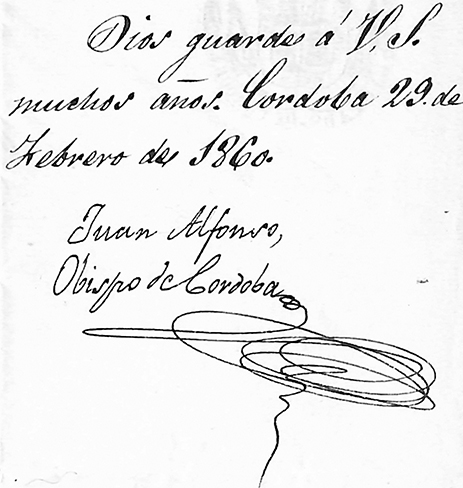 Dios guarde á V. S.
muchos años. Cordoba 29. de
Febrero de 1860.
Juan Alfonso,
Obispo de Cordoba